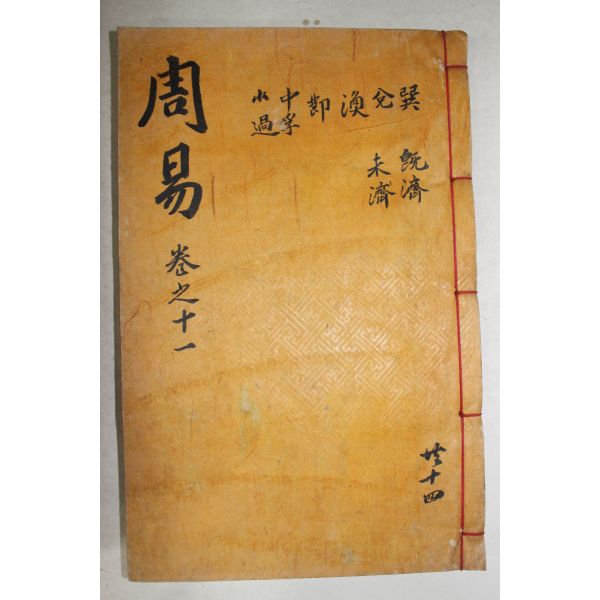 周易
卷之十一
巽
兌
渙
節
中孚
小過
旣濟
未濟
共十四